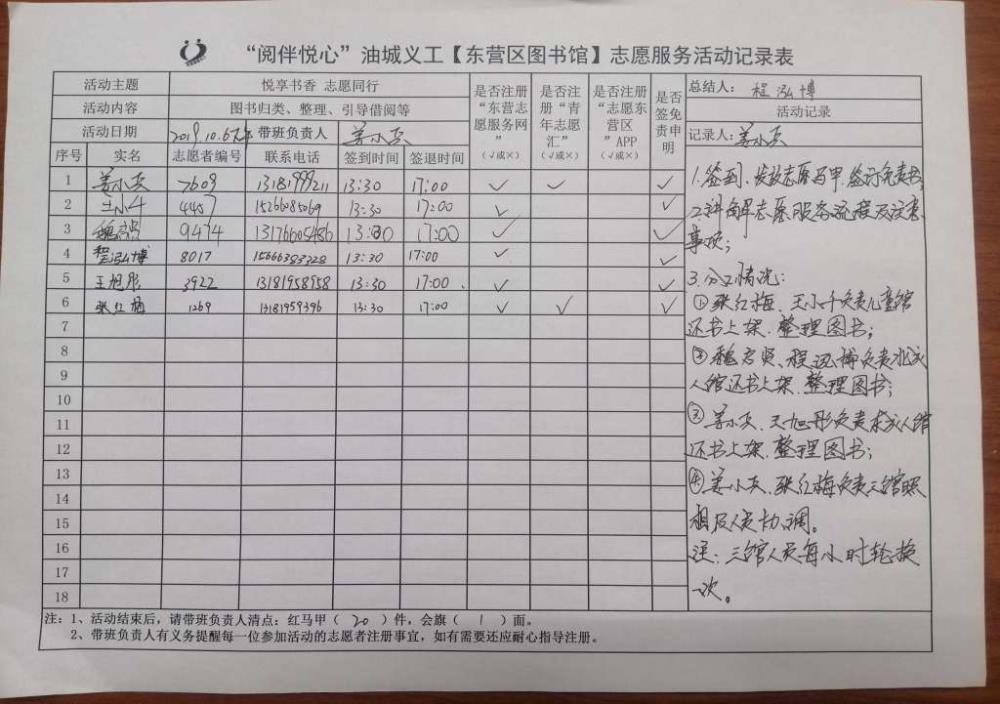 “阅伴悦心”油城义工【东营区图书馆】志愿服务活动记录表
活动主题 悦享书香 志愿同行
活动内容 图书归类、整理、引导借阅等
活动日期 2019.10.6 带班负责人 姜小兵
序号 实名 志愿者编号 联系电话 签到时间 签退时间 是否注册“东营志愿服务网”(√或×) 是否注册“青年志愿汇”(√或×) 是否注册“志愿东营区”APP(√或×) 是否签免责申明
1 姜小兵 7609 13181999211 13:30 17:00 √ √ √
2 王小千 4407 15266085069 13:30 17:00 √ √
3 魏 9474 13176605486 13:30 17:00 √ √
4 程泓博 8017 15666383328 13:30 17:00 √ √
5 王旭彤 3922 13181958958 13:30 17:00 √ √
6 张红梅 1269 13181959396 13:30 17:00 √ √ √
7
8
9
10
11
12
13
14
15
16
17
18
总结人:程泓博
活动记录
记录人:姜小兵
1.签到、发放志愿马甲、签订免责书
2.讲解志愿服务流程及注意
事项;
3.分工情况:
①张红梅、王小千负责儿童馆
还书上架、整理图书;
②魏 、程泓博负责北成
人馆还书上架、整理图书;
③姜小兵、王旭彤负责东成人馆
还书上架、整理图书;
④姜小兵、张红梅负责三馆照
相及人员协调。
注:三馆人员每小时轮换
一次。
注:1、活动结束后,请带班负责人清点:红马甲( 20 )件,会旗( 1 )面。
2、带班负责人有义务提醒每一位参加活动的志愿者注册事宜,如有需要还应耐心指导注册。